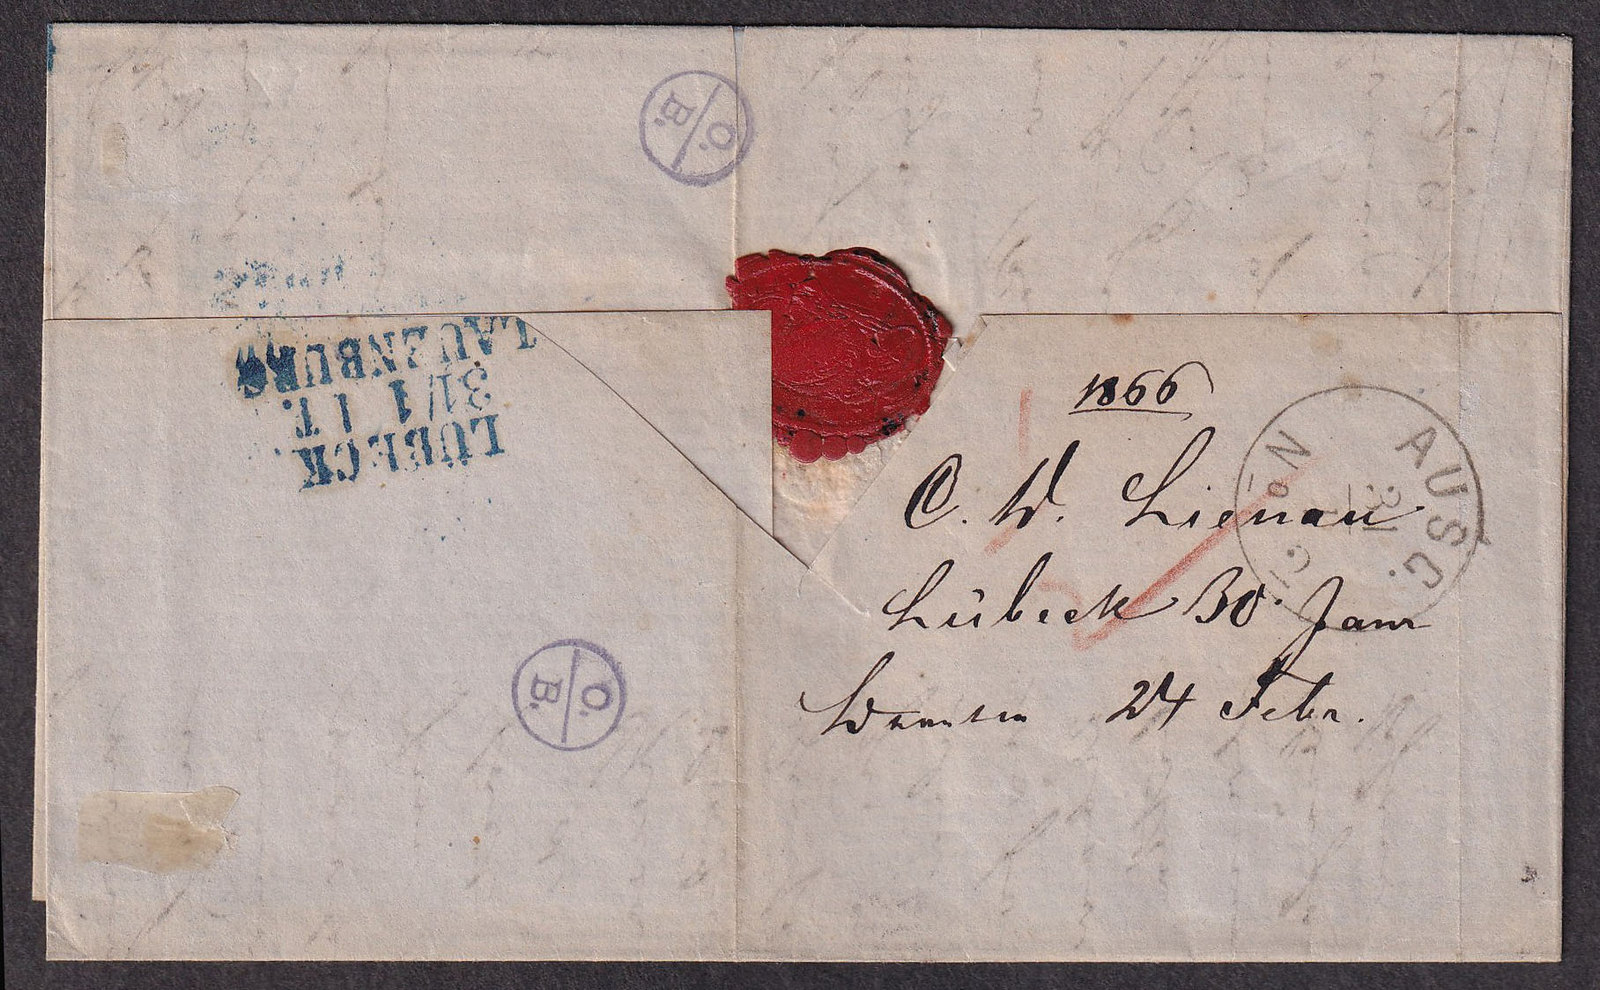 O.
B.
LÜBECK
31/1 1 T.
LAUENBURG
1866
C. W. Lienau
Lübeck 30 Janr
24 Febr.
AUSG.
31
No 2
O.
B.